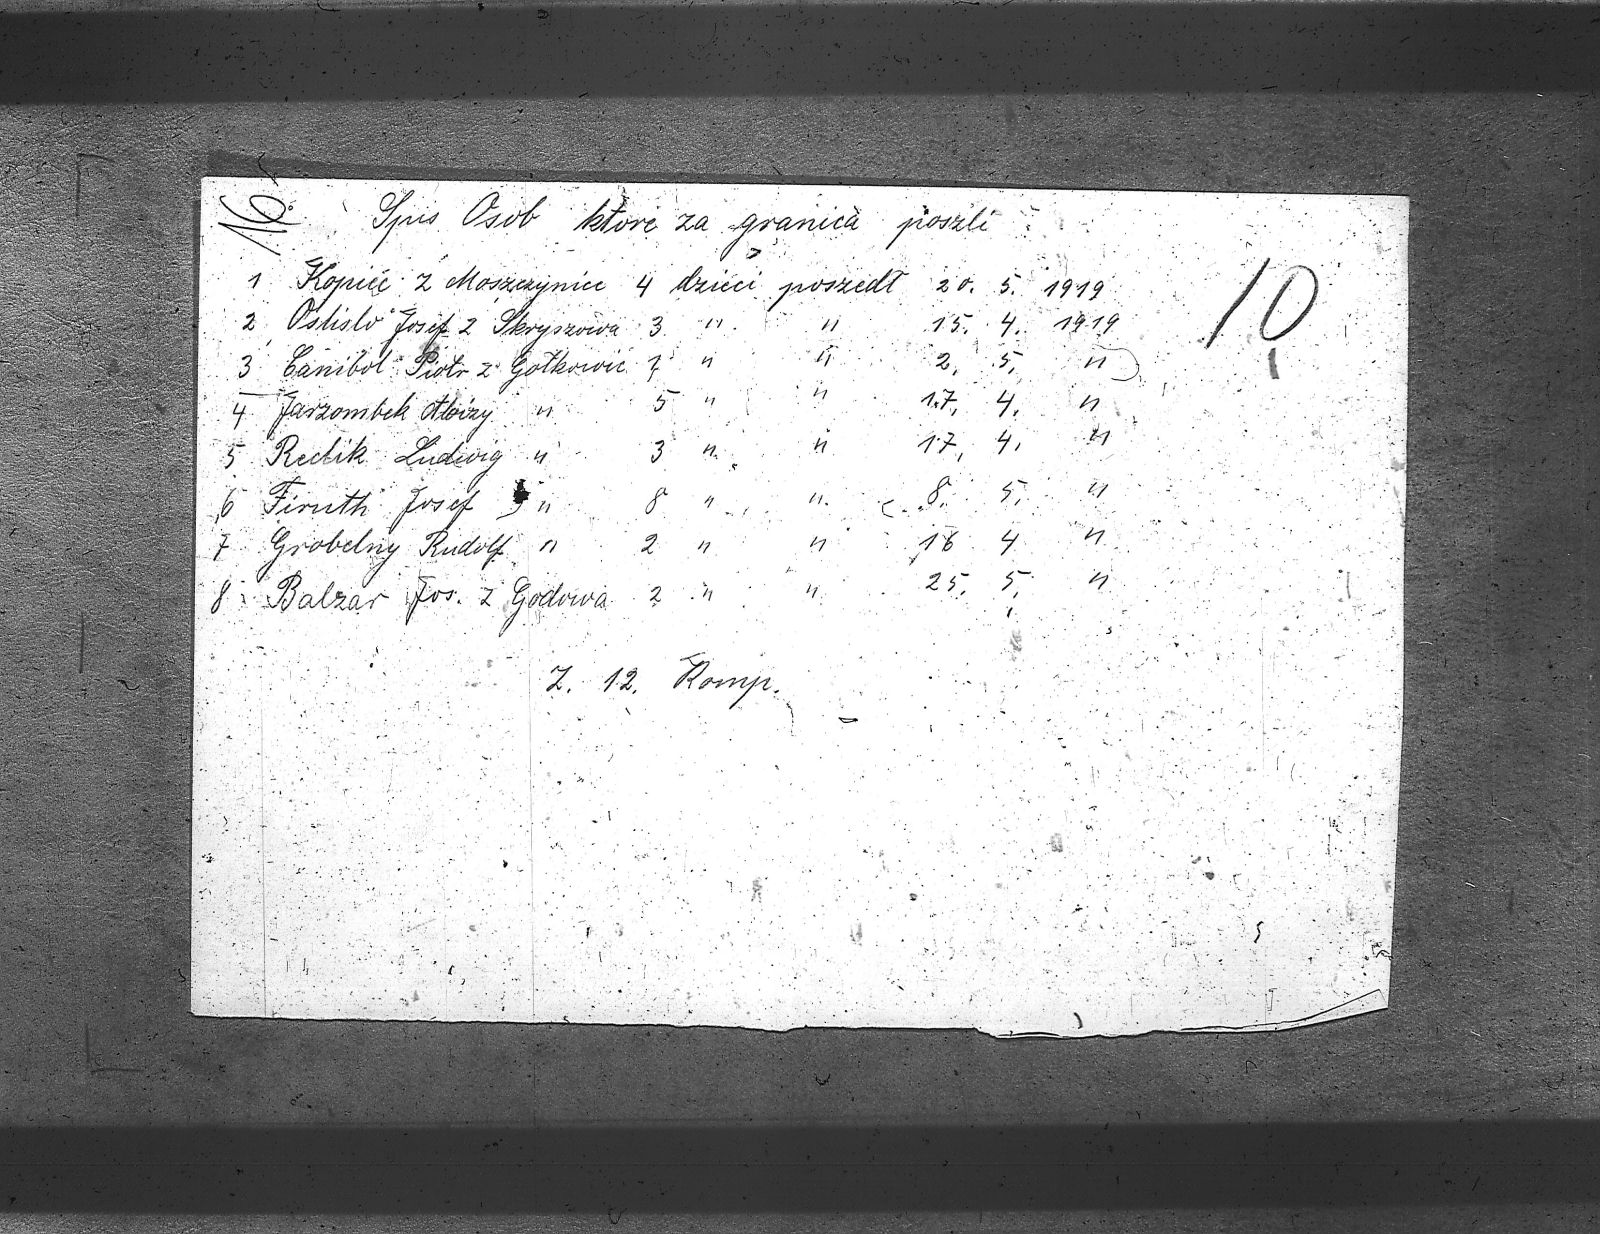 16.
Spis Osob ktore za granica poszli
10
1 Kopiec z Moszczynice 4 dzieci poszedł 20. 5. 1919
2 Ostislo Josef z Skryszowa 3 " " 15. 4. 1919
3 Canibol Piotr z Gołkowic 7 " " 2. 5. "
4 Jarzombek Aloizy " 5 " " 17. 4. "
5 Reclik Ludwig " 3 " " 17. 4. "
6 Firuth Josef " 8 " " 8. 5. "
7 Grobelny Rudolf " 2 " " 16 4 "
8 Balzar Jos. z Godowa 2 " " 25. 5. "
Z. 12. Komp.